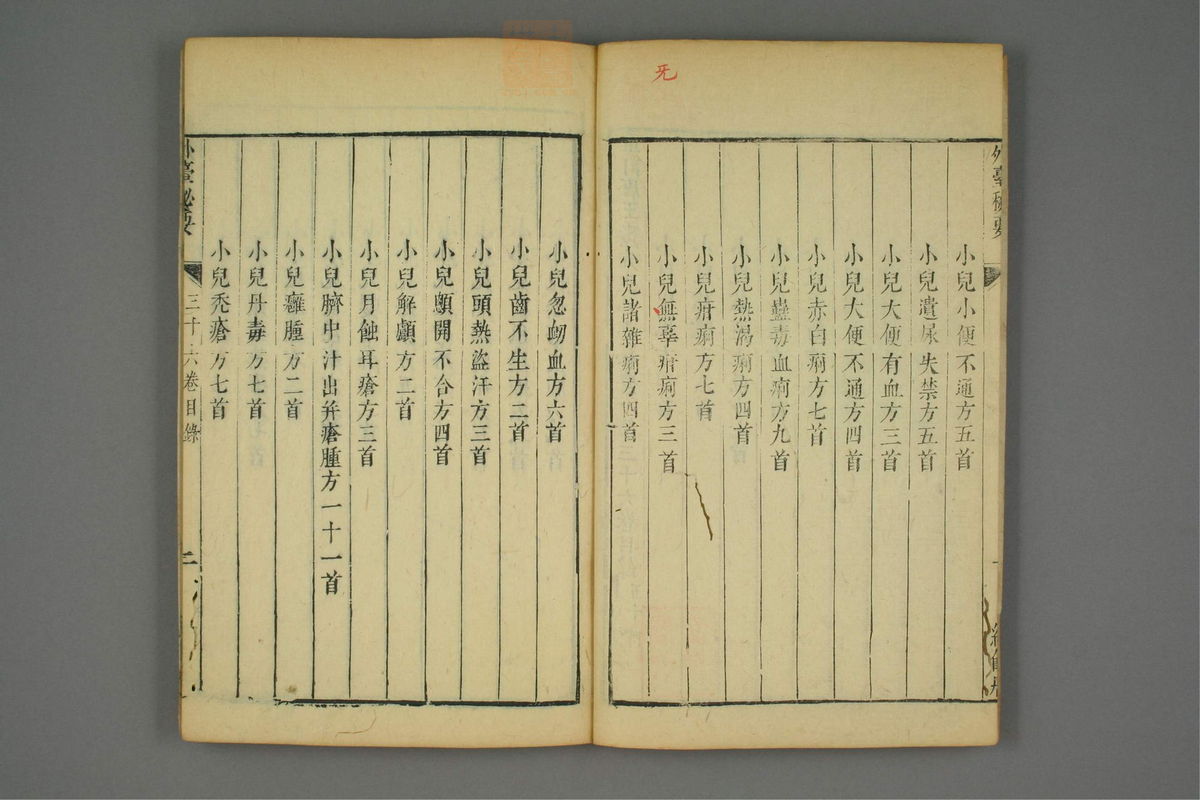 旡
外臺秘要
小兒小便不通方五首
小兒遺尿失禁方五首
小兒大便有血方三首
小兒大便不通方四首
小兒赤白痢方七首
小兒蠱毒血痢方九首
小兒熱渴痢方四首
小兒疳痢方七首
小兒無辜疳痢方三首
小兒諸雜痢方四首
小兒忽衂血方六首
小兒齒不生方二首
小兒頭熱盜汗方三首
小兒顖開不合方四首
小兒解顱方二首
小兒月蝕耳瘡方三首
小兒臍中汁出并瘡腫方一十一首
小兒癰腫方二首
小兒丹毒方七首
小兒禿瘡方七首
外臺秘要
三十六卷目錄
二